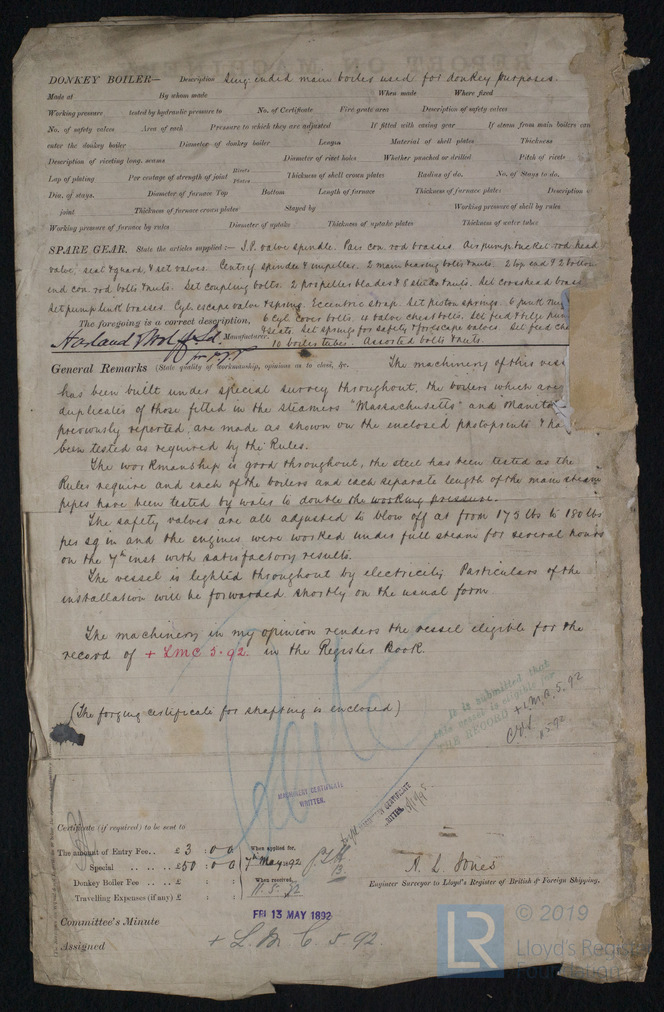 DONKEY BOILER— Description Sing: ended main boiler used for donkey purposes.
Made at By whom made When made Where fixed
Working pressure tested by hydraulic pressure to No. of Certificate Fire grate area Description of safety valves
No. of safety valves Area of each Pressure to which they are adjusted If fitted with easing gear If steam from main boilers can
enter the donkey boiler Diameter of donkey boiler Length Material of shell plates Thickness
Description of riveting long. seams Diameter of rivet holes Whether punched or drilled Pitch of rivets
Lap of plating Per centage of strength of joint Rivets Plates Thickness of shell crown plates Radius of do. No. of Stays to do.
Dia. of stays. Diameter of furnace Top Bottom Length of furnace Thickness of furnace plates Description of
joint Thickness of furnace crown plates Stayed by Working pressure of shell by rules
Working pressure of furnace by rules Diameter of uptake Thickness of uptake plates Thickness of water tubes
SPARE GEAR. State the articles supplied:— S.P. valve spindle. Pair con. rod brasses. Air pump bucket rod head
valve, seat & guard, & set valves. Centrif spindle & impeller. 2 main bearing bolts & nuts. 2 top end & 2 bottom
end con. rod bolts & nuts. Set coupling bolts. 2 propeller blades & 8 studs & nuts. Set crosshead brass
Set pump link brasses. Cyl. escape valve & spring. Eccentric strap. Set piston springs. 6 junk
6 cyl. cover bolts. 12 valve chest bolts. Set feed & bilge
The foregoing is a correct description,
& seats. Set springs for safety & for escape valves. Set feed
Harland & Wolff Ld. Manufacturer. 10 boiler tubes. Assorted bolts & nuts.
General Remarks (State quality of workmanship, opinions as to class, &c. The machinery of this
has been built under special survey throughout, the boilers which are
duplicates of those fitted in the steamers "Massachusetts" and
previously reported, are made as shown on the enclosed photoprints &
been tested as required by the Rules.
The workmanship is good throughout, the steel has been tested as the
Rules require and each of the boilers and each separate length of the main steam
pipes have been tested by water to double the working pressure.
The safety valves are all adjusted to blow off at from 175 lbs to 180 lbs
per sq in and the engines were worked under full steam for several hours
on the 7th inst with satisfactory results.
The vessel is lighted throughout by electricity. Particulars of the
installation will be forwarded shortly on the usual form
The machinery in my opinion renders the vessel eligible for the
record of + LMC 5.92. in the Register Book.
It is submitted that
this vessel is eligible for
THE RECORD + L.M.C. 5.92
(The forging certificate for shafting is enclosed)
MACHINERY CERTIFICATE
WRITTEN.
Certificate (if required) to be sent to
The amount of Entry Fee.. £ 3 : 0 0 When applied for,
Special .. .. £ 50 : 0 0 7th May 92
Donkey Boiler Fee .. .. £ : : When received,
Travelling Expenses (if any) £ : : 11.5.92
A. L. Jones
Engineer Surveyor to Lloyd's Register of British & Foreign Shipping.
Committee's Minute FRI 13 MAY 1892
Assigned + L. M C. 5 92.
LR © 2019
Lloyd's Register
Foundation